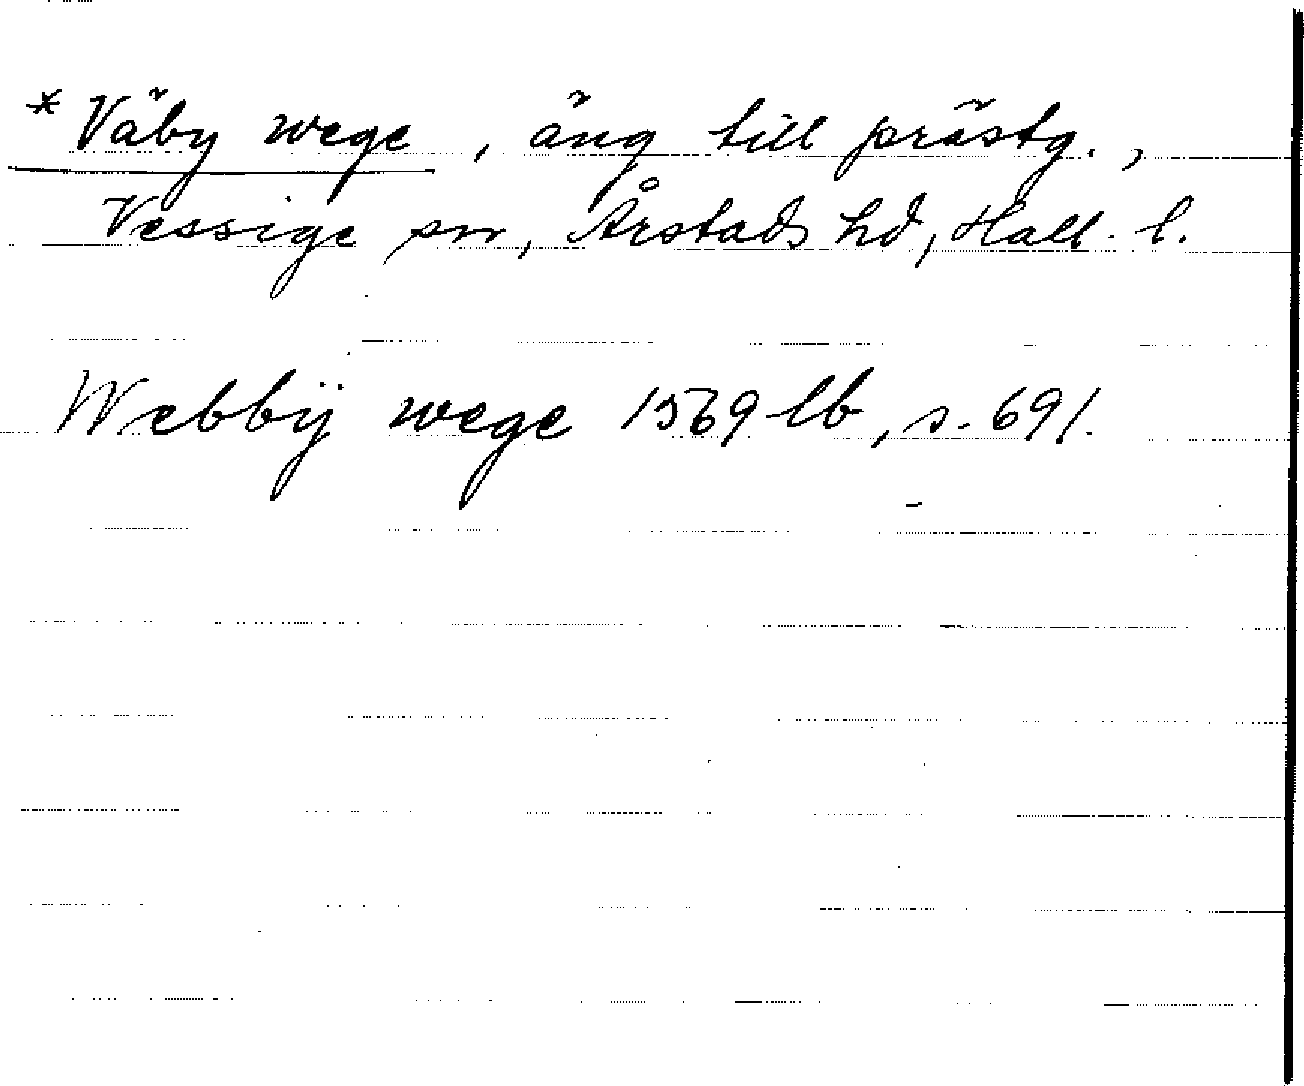 * Väby wege, äng till prästg.,
Vessige sn, Årstads hd, Hall. l.
Webbÿ wege 1569 lb, s. 691.